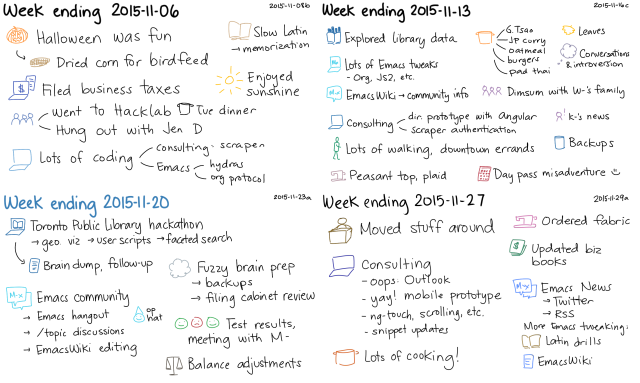 Week ending 2015-11-06
2015-11-08b
Halloween was fun
Dried corn for birdfeed
Slow Latin
→ memorization
Filed business taxes
Enjoyed
sunshine
Went to Hacklab
Tue dinner
Hung out with Jen D
Lots of coding
consulting - scraper
Emacs
hydras
org protocol
Week ending 2015-11-13
2015-11-16c
Explored library data
G. Tsao
JP curry
oatmeal
burgers
pad thai
Leaves
Conversations
& introversion
Lots of Emacs tweaks
- Org, JS2, etc.
EmacsWiki → community info
Dimsum with W-'s family
Consulting
din prototype with Angular
scraper authentication
k-'s news
Lots of walking, downtown errands
Backups
Peasant top, plaid
Day pass misadventure
Week ending 2015-11-20
2015-11-23a
Toronto Public Library hackathon
→ geo viz → user scripts → faceted search
Brain dump, follow-up
Fuzzy brain prep
→ backups
→ filing cabinet review
M-x
Emacs community
→ Emacs hangout
op
hat
→ /topic discussions
→ EmacsWiki editing
Test results,
meeting with M-
Balance adjustments
Week ending 2015-11-27
2015-11-29a
Moved stuff around
Ordered fabric
Updated biz
books
Consulting
- oops: Outlook
- yay! mobile prototype
- ng-touch, scrolling, etc.
- snippet updates
M-x
Emacs News
→ Twitter
→ RSS
More Emacs tweaking!
Latin drills
Lots of cooking!
EmacsWiki